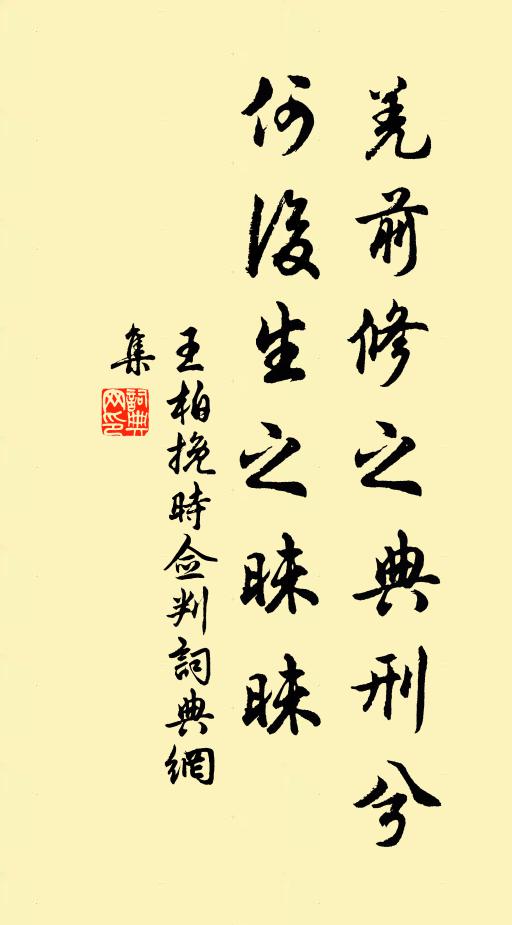 羌前修之典刑兮
何後生之昧昧
王柏挽時僉判詞典網
集
詞典
网印